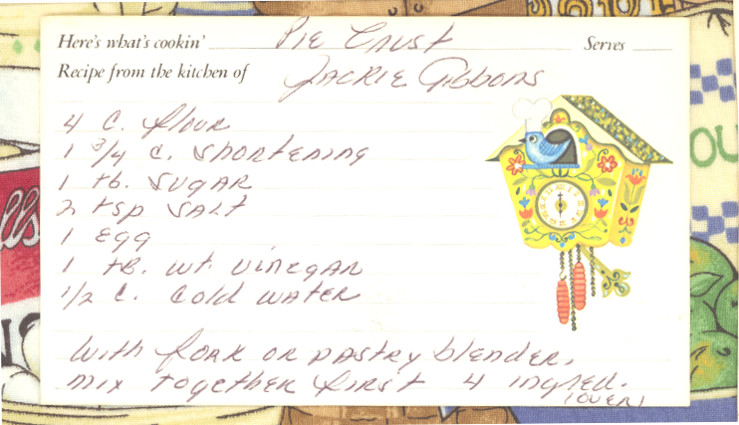 Here's what's cookin' Pie Crust Serves
Recipe from the kitchen of Jackie Gibbons
4 c. flour
1 3/4 c. shortening
1 tb. sugar
2 tsp salt
1 egg
1 tb. wt. vinegar
1/2 c. cold water
With fork or pastry blender,
mix together first 4 ingred.
(over)